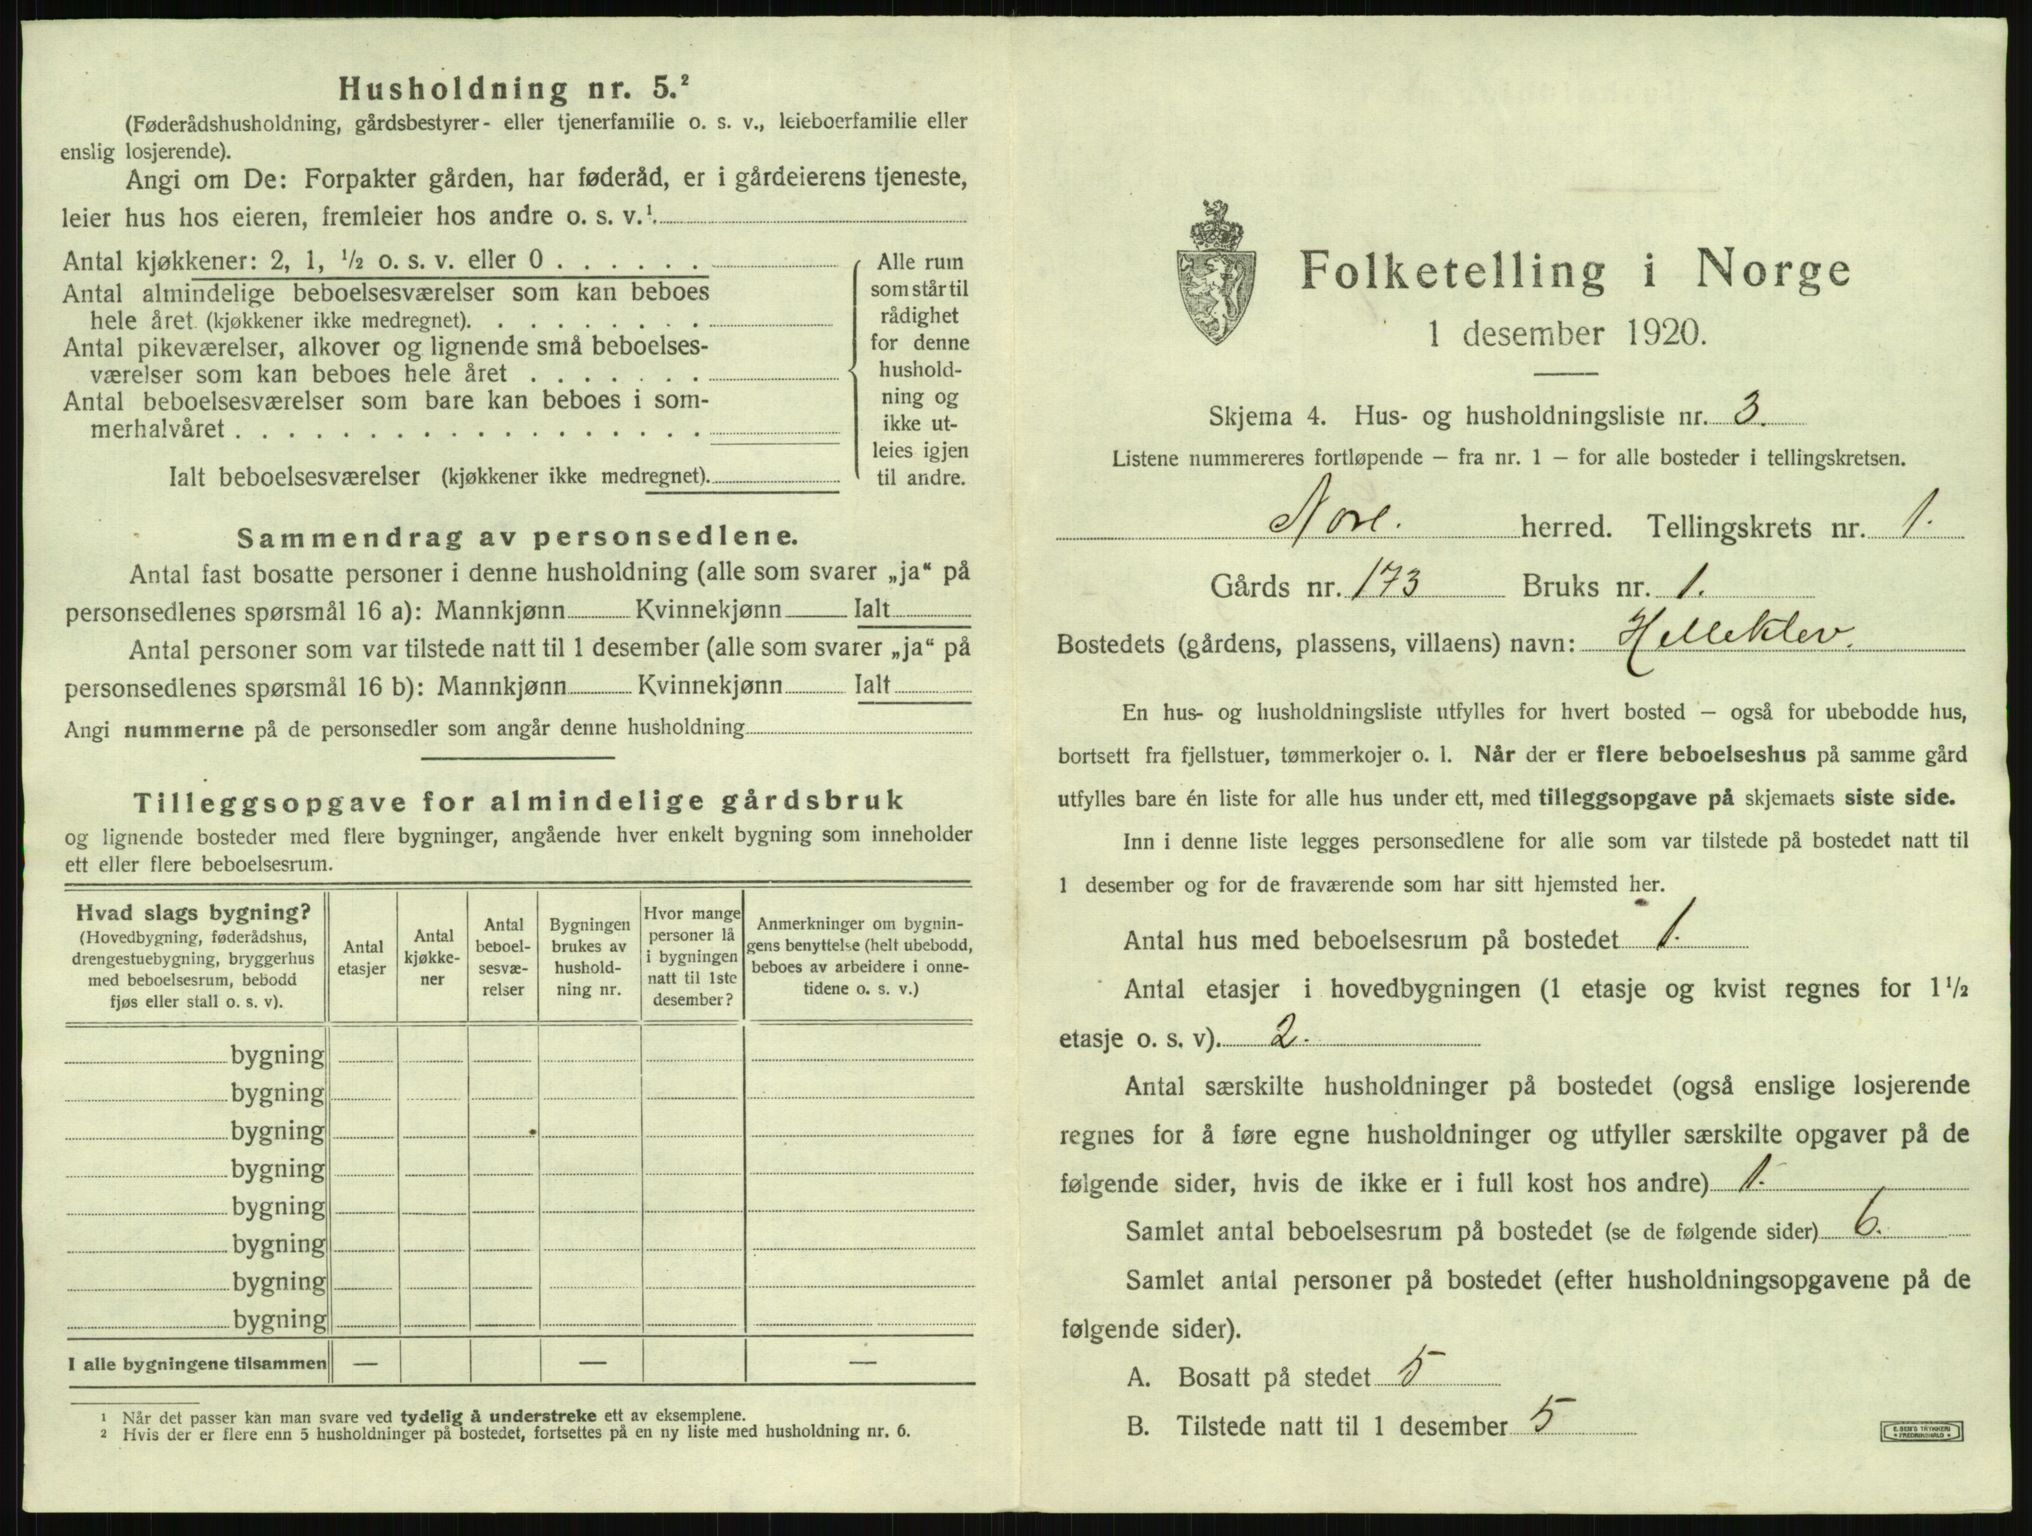 Husholdning nr. 5.²
(Føderådshusholdning, gårdsbestyrer- eller tjenerfamilie o. s. v., leieboerfamilie eller
enslig losjerende).
Angi om De: Forpakter gården, har føderåd, er i gårdeierens tjeneste,
leier hus hos eieren, fremleier hos andre o. s. v.¹
Antal kjøkkener: 2, 1, ½ o. s. v. eller 0 . . . . . .
Antal almindelige beboelsesværelser som kan beboes
hele året (kjøkkener ikke medregnet). . . . . . . . .
Antal pikeværelser, alkover og lignende små beboelses-
værelser som kan beboes hele året . . . . . . .
Antal beboelsesværelser som bare kan beboes i som-
merhalvåret . . . . . . . . . . . . . . . . . .
Ialt beboelsesværelser (kjøkkener ikke medregnet).
Alle rum
som står til
rådighet
for denne
hushold-
ning og
ikke ut-
leies igjen
til andre.
Sammendrag av personsedlene.
Antal fast bosatte personer i denne husholdning (alle som svarer „ja“ på
personsedlenes spørsmål 16 a): Mannkjønn Kvinnekjønn Ialt
Antal personer som var tilstede natt til 1 desember (alle som svarer „ja“ på
personsedlenes spørsmål 16 b): Mannkjønn Kvinnekjønn Ialt
Angi nummerne på de personsedler som angår denne husholdning
Tilleggsopgave for almindelige gårdsbruk
og lignende bosteder med flere bygninger, angående hver enkelt bygning som inneholder
ett eller flere beboelsesrum.
Hvad slags bygning?
(Hovedbygning, føderådshus,
drengestuebygning, bryggerhus
med beboelsesrum, bebodd
fjøs eller stall o. s. v).
Antal
etasjer
Antal
kjøkke-
ner
Antal
beboel-
sesvæ-
relser
Bygningen
brukes av
hushold-
ning nr.
Hvor mange
personer lå
i bygningen
natt til 1ste
desember?
Anmerkninger om bygnin-
gens benyttelse (helt ubebodd,
beboes av arbeidere i onne-
tidene o. s. v.)
bygning
bygning
bygning
bygning
bygning
bygning
bygning
bygning
I alle bygningene tilsammen — — —
¹ Når det passer kan man svare ved tydelig å understreke ett av eksemplene.
² Hvis der er flere enn 5 husholdninger på bostedet, fortsettes på en ny liste med husholdning nr. 6.
Folketelling i Norge
1 desember 1920.
Skjema 4. Hus- og husholdningsliste nr. 3.
Listene nummereres fortløpende — fra nr. 1 — for alle bosteder i tellingskretsen.
Nore. herred. Tellingskrets nr. 1.
Gårds nr. 173 Bruks nr. 1.
Bostedets (gårdens, plassens, villaens) navn: Helleklev.
En hus- og husholdningsliste utfylles for hvert bosted — også for ubebodde hus,
bortsett fra fjellstuer, tømmerkojer o. l. Når der er flere beboelseshus på samme gård
utfylles bare én liste for alle hus under ett, med tilleggsopgave på skjemaets siste side.
Inn i denne liste legges personsedlene for alle som var tilstede på bostedet natt til
1 desember og for de fraværende som har sitt hjemsted her.
Antal hus med beboelsesrum på bostedet 1.
Antal etasjer i hovedbygningen (1 etasje og kvist regnes for 1½
etasje o. s. v). 2.
Antal særskilte husholdninger på bostedet (også enslige losjerende
regnes for å føre egne husholdninger og utfyller særskilte opgaver på de
følgende sider, hvis de ikke er i full kost hos andre) 1.
Samlet antal beboelsesrum på bostedet (se de følgende sider) 6.
Samlet antal personer på bostedet (efter husholdningsopgavene på de
følgende sider).
A. Bosatt på stedet 5
B. Tilstede natt til 1 desember 5
E. SEM'S TRYKKERI
FREDRIKSHALD